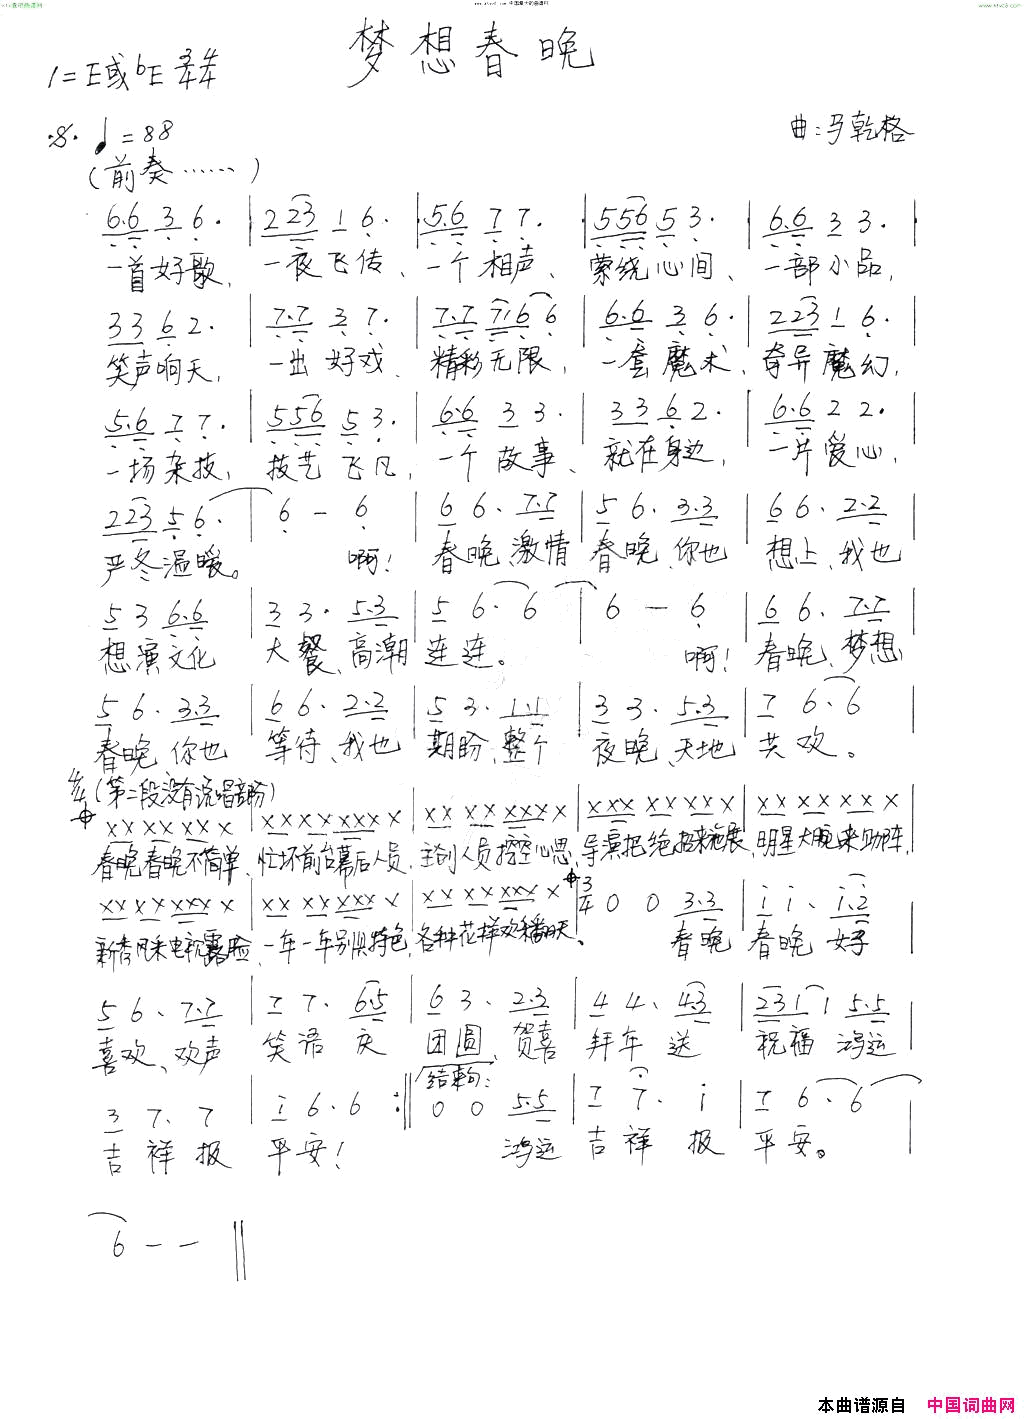 梦想春晚
1=E或bE 3/4 4/4
♩=88
曲:马乾格
(前奏……)
6.6 3 6. | 2 23 1 6. | 5.6 7 7. | 5 56 5 3. | 6.6 3 3. |
一首好歌, 一夜飞传、一个相声、萦绕心间、一部小品,
3 3 6 2. | 7.7 3 7. | 7.7 716 6 | 6.6 3 6. | 2 23 1 6. |
笑声响天, 一出好戏、精彩无限,一套魔术、奇异魔幻,
5.6 7 7. | 5 56 5 3. | 6.6 3 3. | 3 3 6 2. | 6.6 2 2. |
一场杂技, 技艺飞凡,一个故事、就在身边,一片爱心,
2 23 5 6. | 6 - 6 | 6 6. 7.7 | 5 6. 3.3 | 6 6. 2.2 |
严冬温暖。 啊! 春晚、激情 春晚、你也 想上、我也
5 3 6.6 | 3 3. 5.3 | 5 6. 6 | 6 - 6 | 6 6. 7.7 |
想演文化 大餐、高潮 连连。 啊! 春晚、梦想
5 6. 3.3 | 6 6. 2.2 | 5 3. 1.1 | 3 3. 5.3 | 7 6. 6 |
春晚、你也 等待、我也 期盼、整个 夜晚、天地 共欢。
4/4 (第二段没有说唱部份)
XX XX XX X | XX XX XXX X | XX XX XXX X | XXX XX XX X | XX XX XX X |
春晚春晚不简单、忙坏前台幕后人员、主创人员挖空心思、导演把绝招来施展、明星大腕来助阵、
XX XX XXX X | XX XX XXX X | XX XX XXX X | 3/4 0 0 3.3 | i i. i.2 |
新秀风采电视露脸、一年一年别俱特色、各种花样欢翻天。 春晚 春晚 好
5 6. 7.7 | 7 7. 6.5 | 6 3. 2.3 | 4 4. 43 | 231 1 5.5 |
喜欢、欢声 笑语 庆 团圆、贺喜 拜年 送 祝福 鸿运
结束句:
3 7. 7 | i 6. 6 :‖ 0 0 5.5 | 7 7. i | 7 6. 6 |
吉祥报 平安! 鸿运 吉祥报 平安。
6 - - ‖
本曲谱源自 中国词曲网